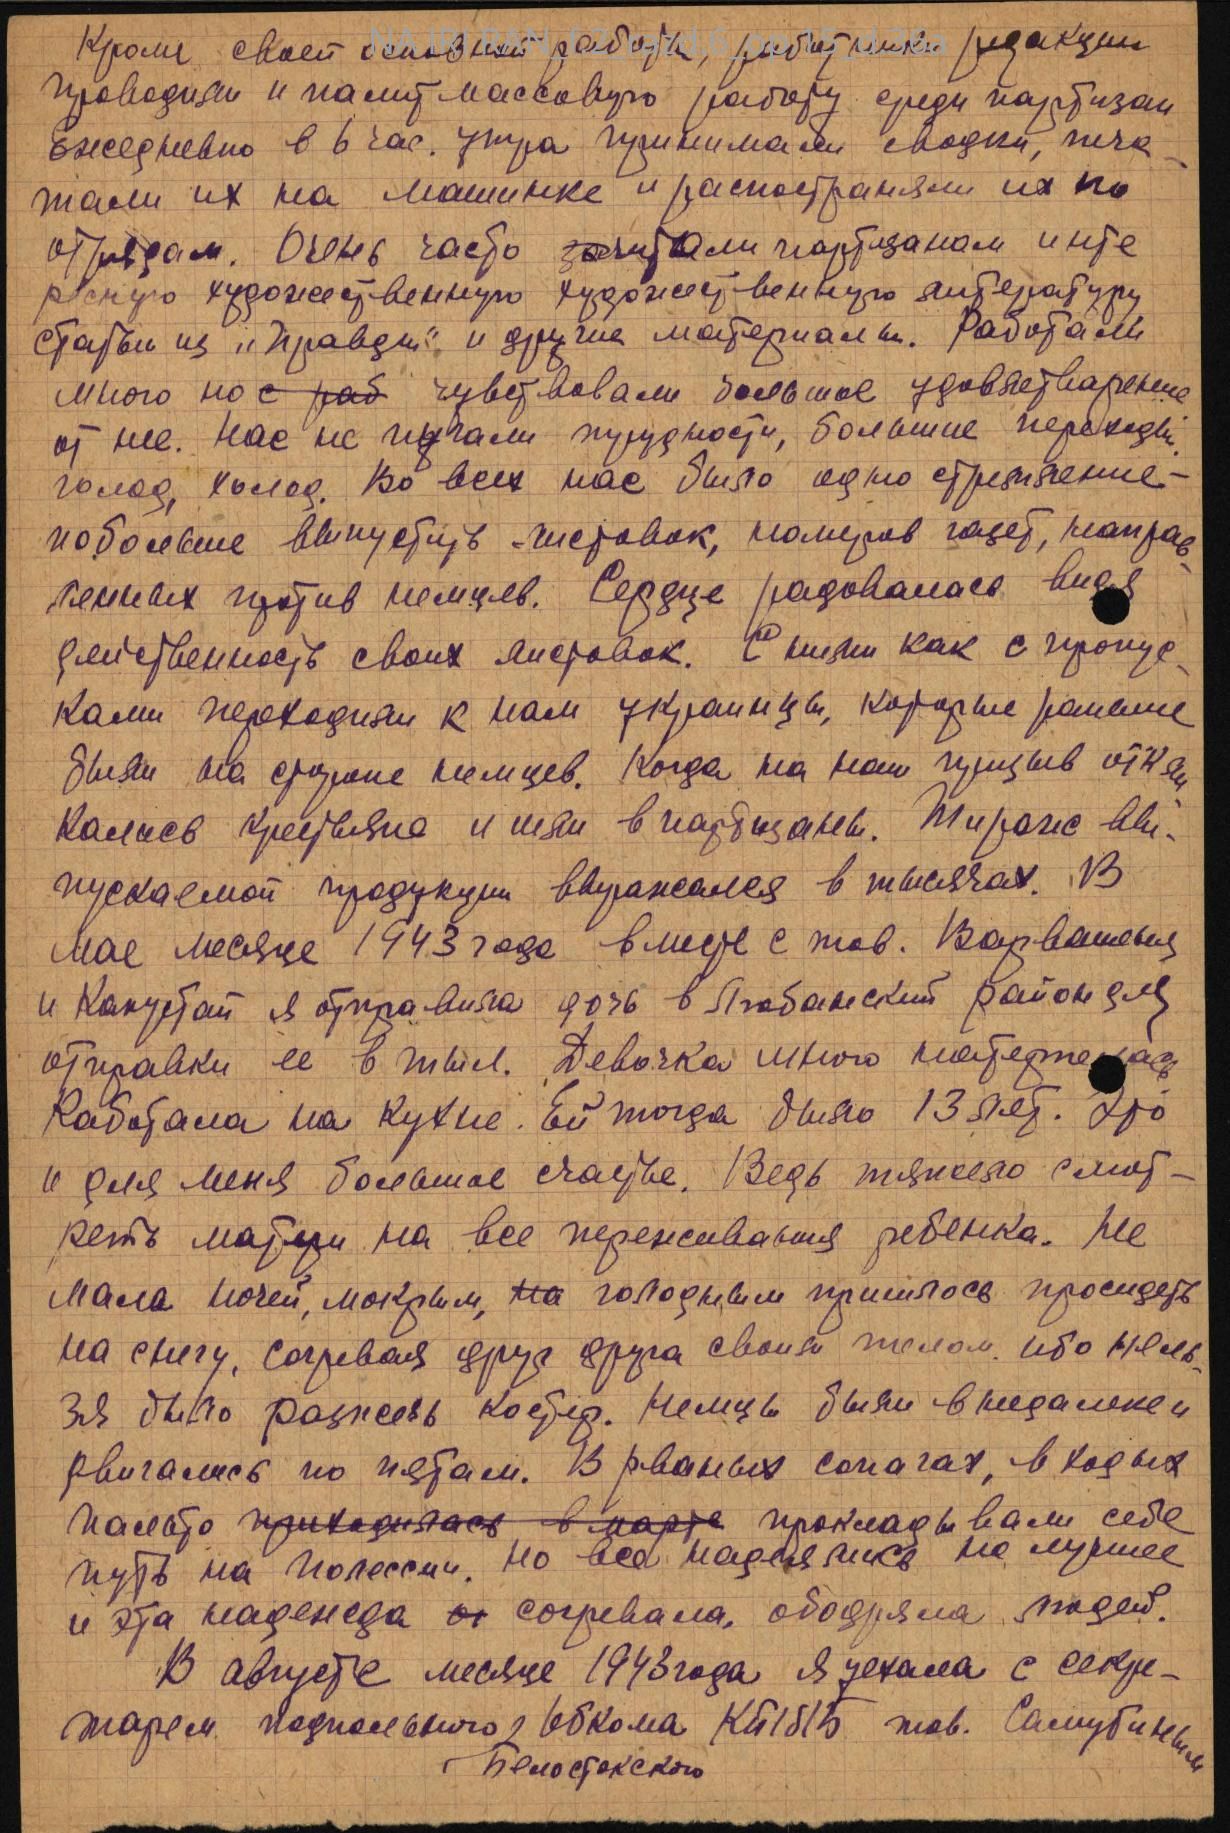 Кроме своей основной работы, работники редакции
проводили и политмассовую работу среди партизан
Ежедневно в 6 час. утра принимали сводки, печа-
тали их на машинке и распостраняли их по
отрядам. Очень часто зачитали партизанам инте
ресную художественную художественную литературу
статьи из "Правды" и другие материалы. Работали
много но с раб чувствовали большое удовлетварение
от нее. Нас не пугали трудности, большие переходы,
голод, холод. Во всех нас было одно стремление-
побольше выпустить листовок, номеров газет, направ-
ленных против немцев. Сердце радовалась видя
действенность своих листовок. С ними как с пропус-
ками переходили к нам украинцы, которые раньше
были на стороне немцев. Когда на наш призыв откли
кались крестьяне и шли в партизаны. Тираж вы-
пускаемой продукции выражался в тысячах. В
мае месяце 1943 года вместе с тов. Варвашеня
и Капустай я отправила дочь в Любанский район для
отправки ее в тыл. Девочка много натерпелась
Работала на кухне. Ей тогда было 13 лет. Это
и для меня большое счастье. Ведь тяжело смот-
реть матери на все переживания ребенка. Не
мала ночей, мокрым, на голодным пришлось просидеть
на снегу, согревая друг друга своим телом. ибо нель-
зя было разжечь костер. Немцы были внедалеке и
двигались по пятам. В рваных сапогах, в худых
пальто приходилась в марте прокладывали себе
путь на Полессии. Но все надеялись на лучшее
и эта надежда ог согревала, ободряла людей.
В августе месяце 1943 года я уехала с секре-
тарем подпольного Обкома КП/б/Б тов. Самутиным
Белостокского